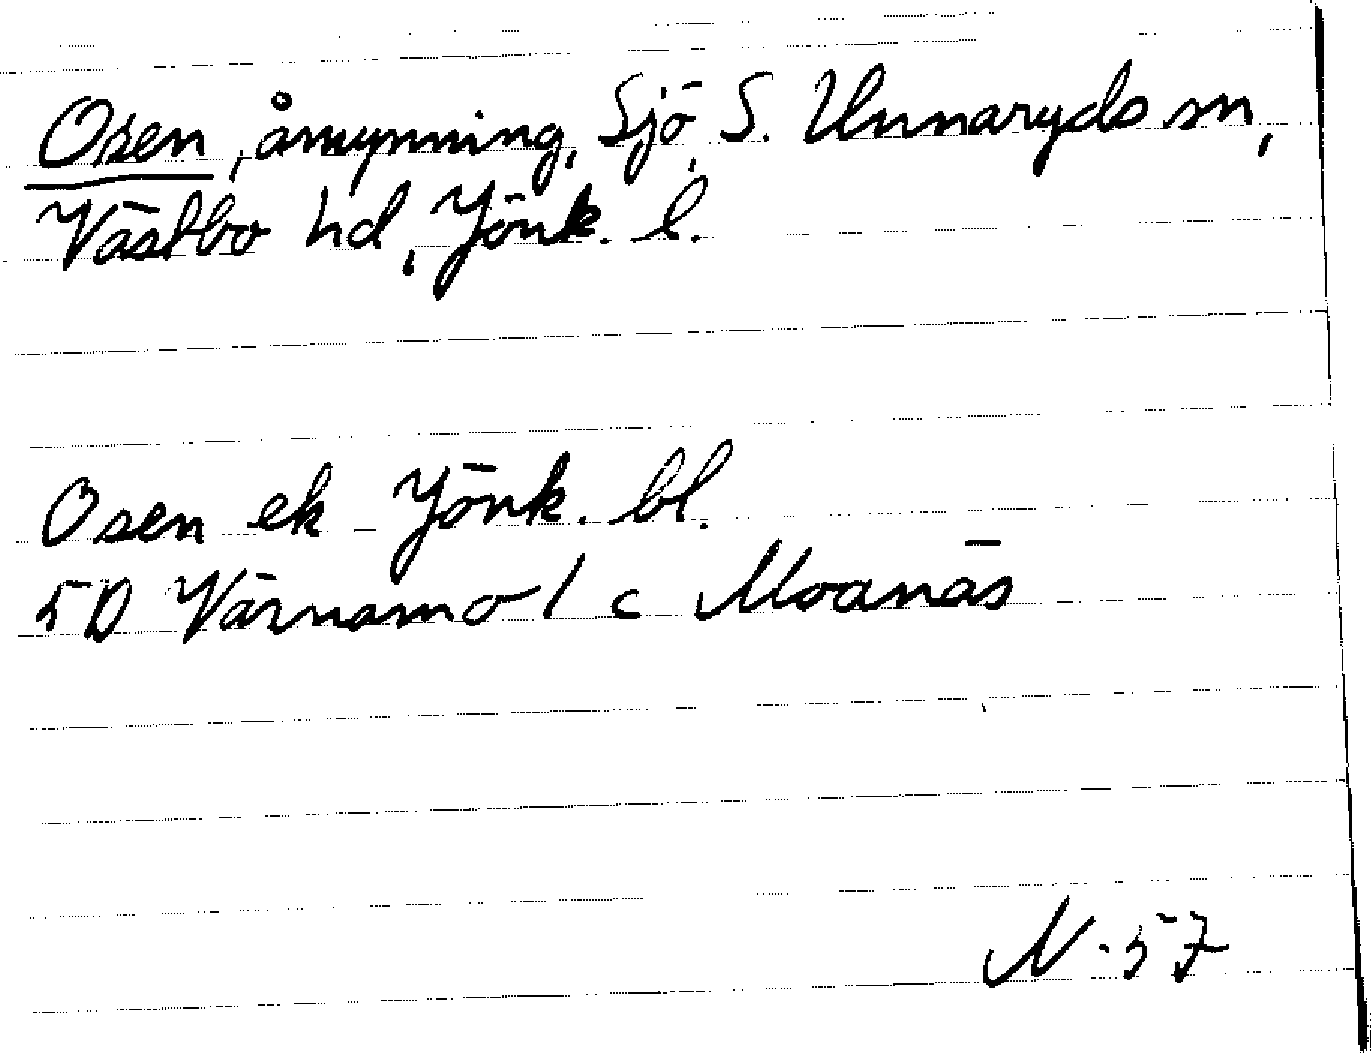 Osen, åmynning, Sjö, S. Unnaryds sn,
Västbo hd, Jönk. l.
Osen ek Jönk. bl.
5D Värnamo 1 c Moanäs
N-57